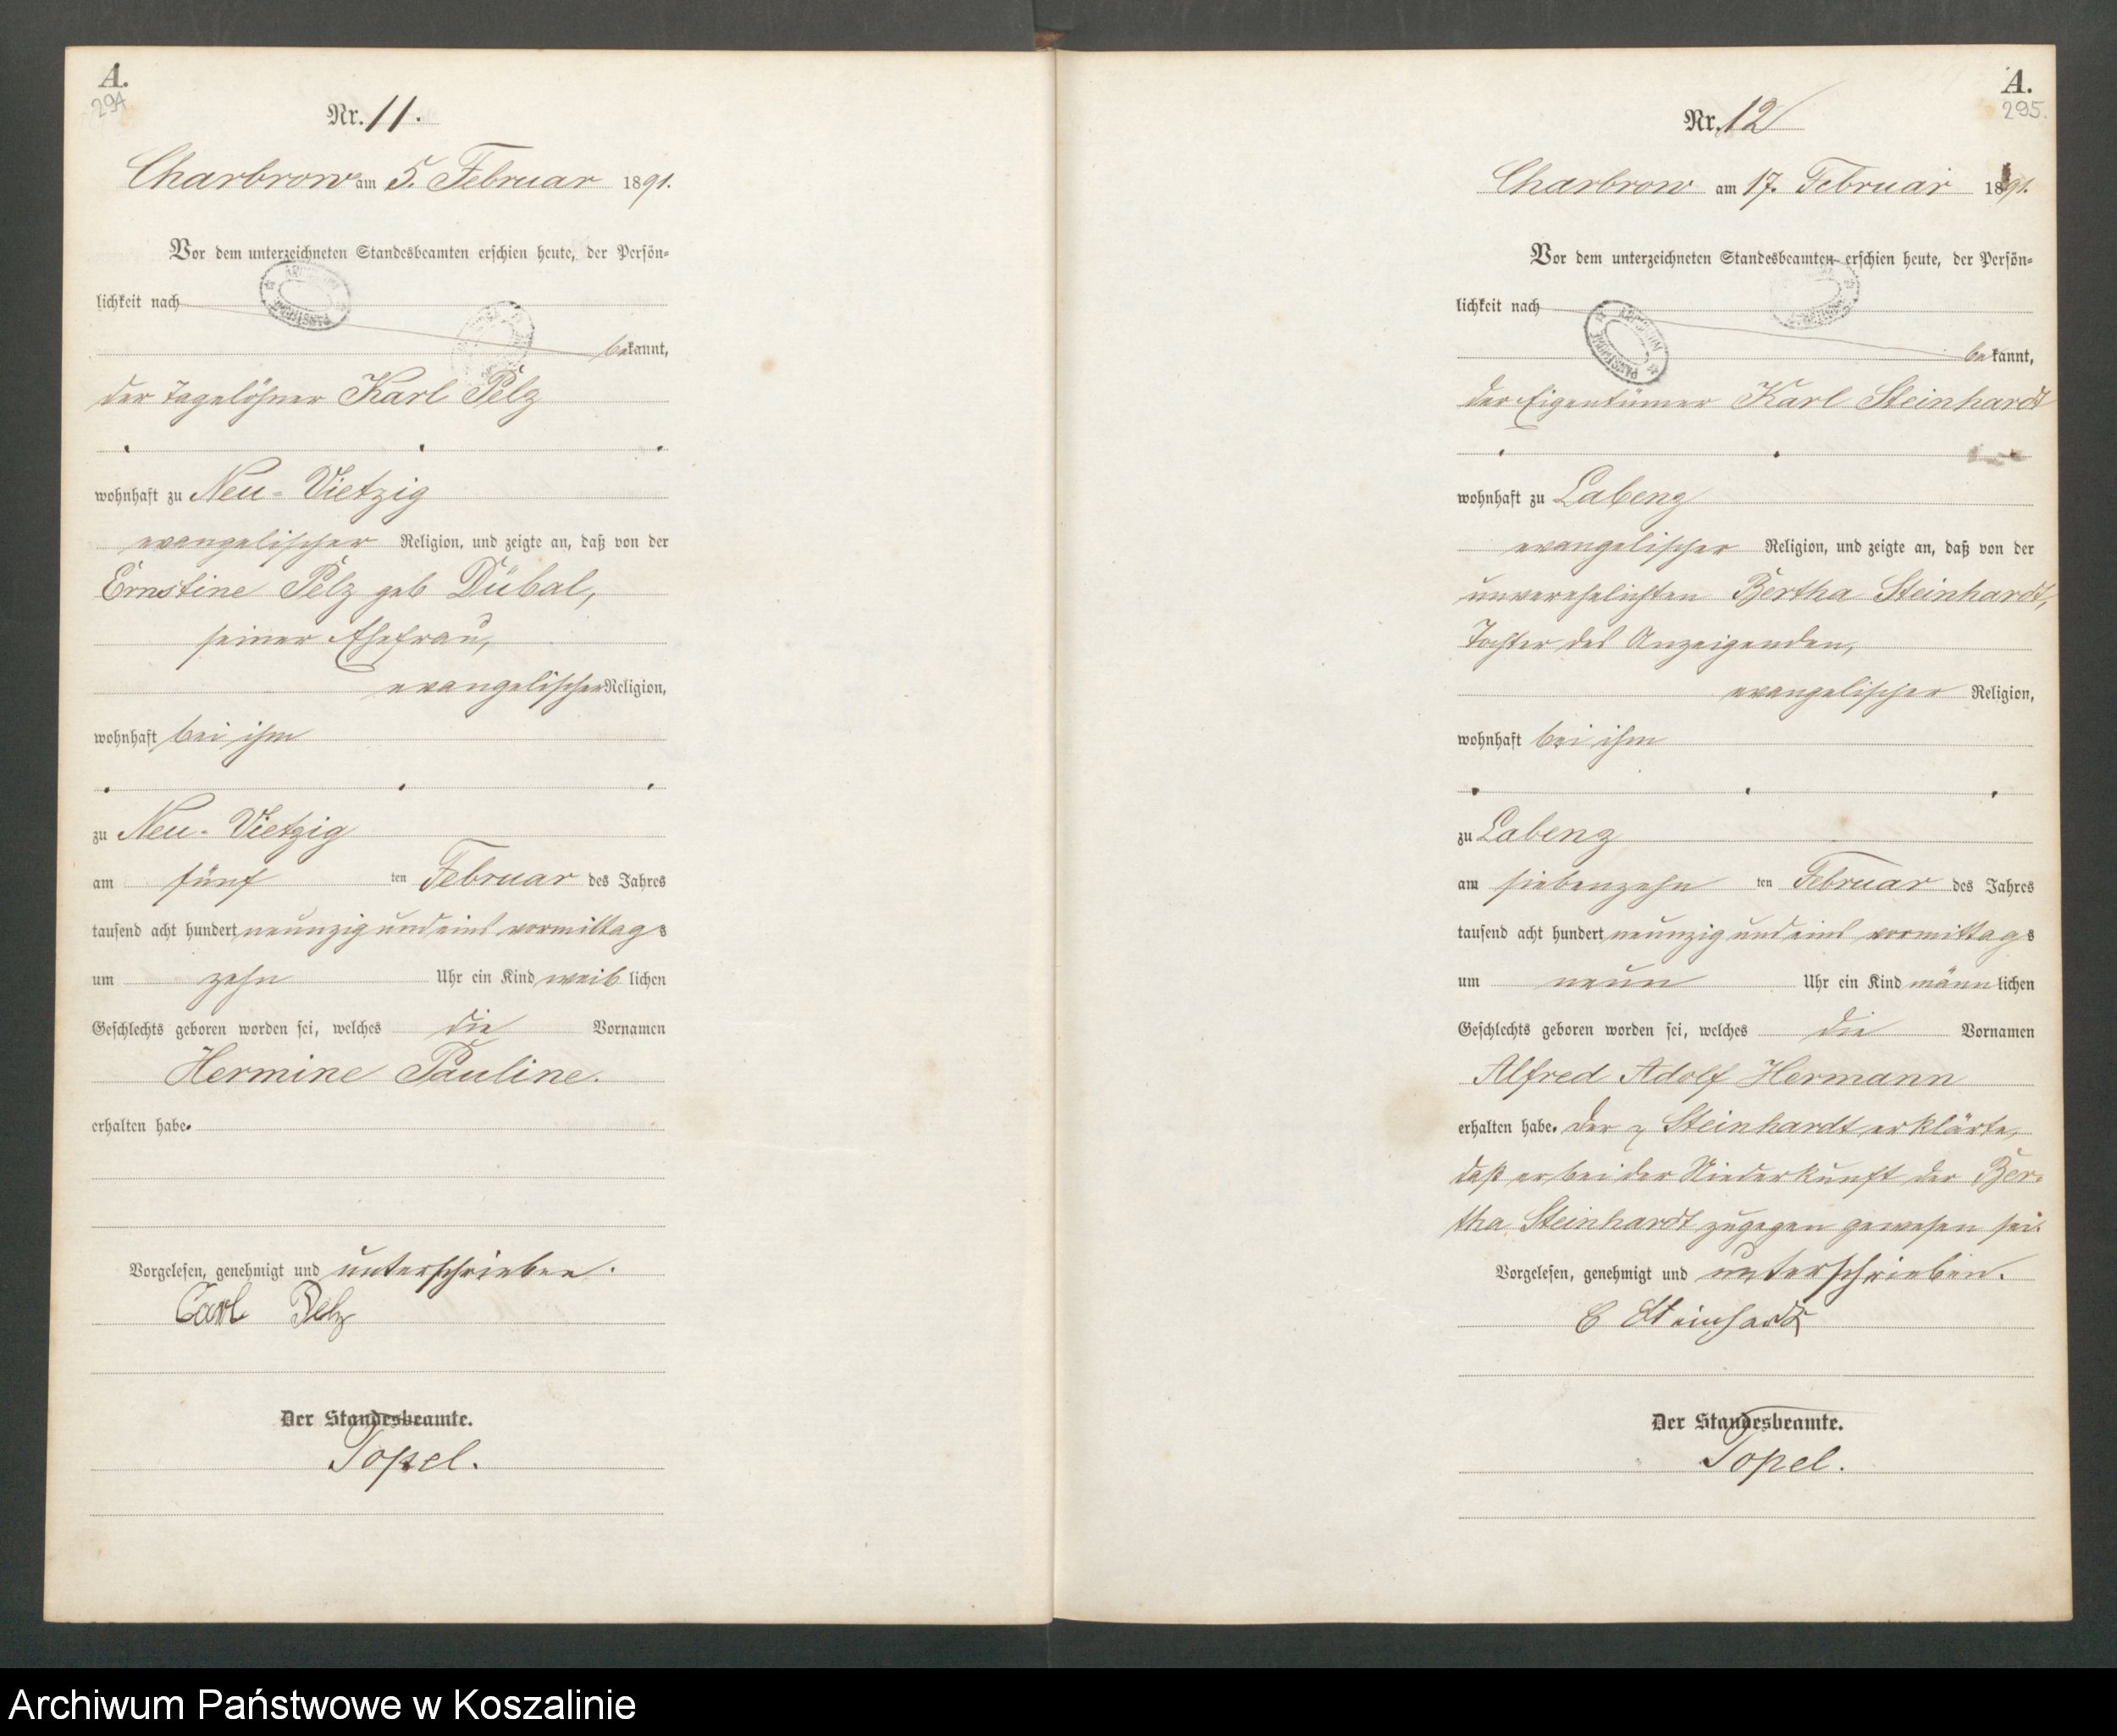 A.
294
Nr. 11.
Charbrow am 5. Februar 1891.
Vor dem unterzeichneten Standesbeamten erschien heute, der Persön-
lichkeit nach
bekannt,
der Tagelöhner Karl Pelz
wohnhaft zu Neu-Vietzig
evangelischer Religion, und zeigte an, daß von der
Ernstine Pelz geb Dübal,
seiner Ehefrau,
evangelischer Religion,
wohnhaft bei ihm
zu Neu-Vietzig
am fünf ten Februar des Jahres
tausend acht hundert neunzig und eins vormittags
um zehn Uhr ein Kind weiblichen
Geschlechts geboren worden sei, welches die Vornamen
Hermine Pauline.
erhalten habe.
Vorgelesen, genehmigt und unterschrieben.
Carl Pelz
Der Standesbeamte.
Topel.
A.
295.
Nr. 12
Charbrow am 17. Februar 1891.
Vor dem unterzeichneten Standesbeamten erschien heute, der Persön-
lichkeit nach
bekannt,
der Eigentümer Karl Steinhardt
wohnhaft zu Labenz
evangelischer Religion, und zeigte an, daß von der
unverehelichten Bertha Steinhardt,
Tochter des Anzeigenden,
evangelischer Religion,
wohnhaft bei ihm
zu Labenz
am siebenzehn ten Februar des Jahres
tausend acht hundert neunzig und eins vormittags
um neun Uhr ein Kind männlichen
Geschlechts geboren worden sei, welches die Vornamen
Alfred Adolf Hermann
erhalten habe. Der Steinhardt erklärte,
daß er bei der Niederkunft der Ber-
tha Steinhardt zugegen gewesen sei.
Vorgelesen, genehmigt und unterschrieben.
C Steinhardt
Der Standesbeamte.
Topel.
Archiwum Państwowe w Koszalinie